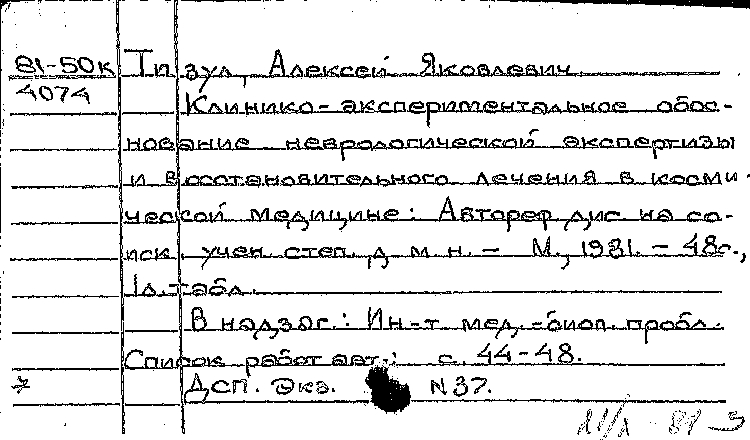 81-50к Тизул, Алексей Яковлевич
4074 Клинико-экспериментальное обос-
нование неврологической экспертизы
и восстановительного лечения в косми-
ческой медицине: Автореф. дис. на со-
иск. учен. степ. д. м. н. - М., 1981. - 48с.,
1л. табл.
В надзаг.: Ин-т. мед.-биол. пробл.
Список работ авт.: с. 44-48.
ДСП. Экз. N 37.